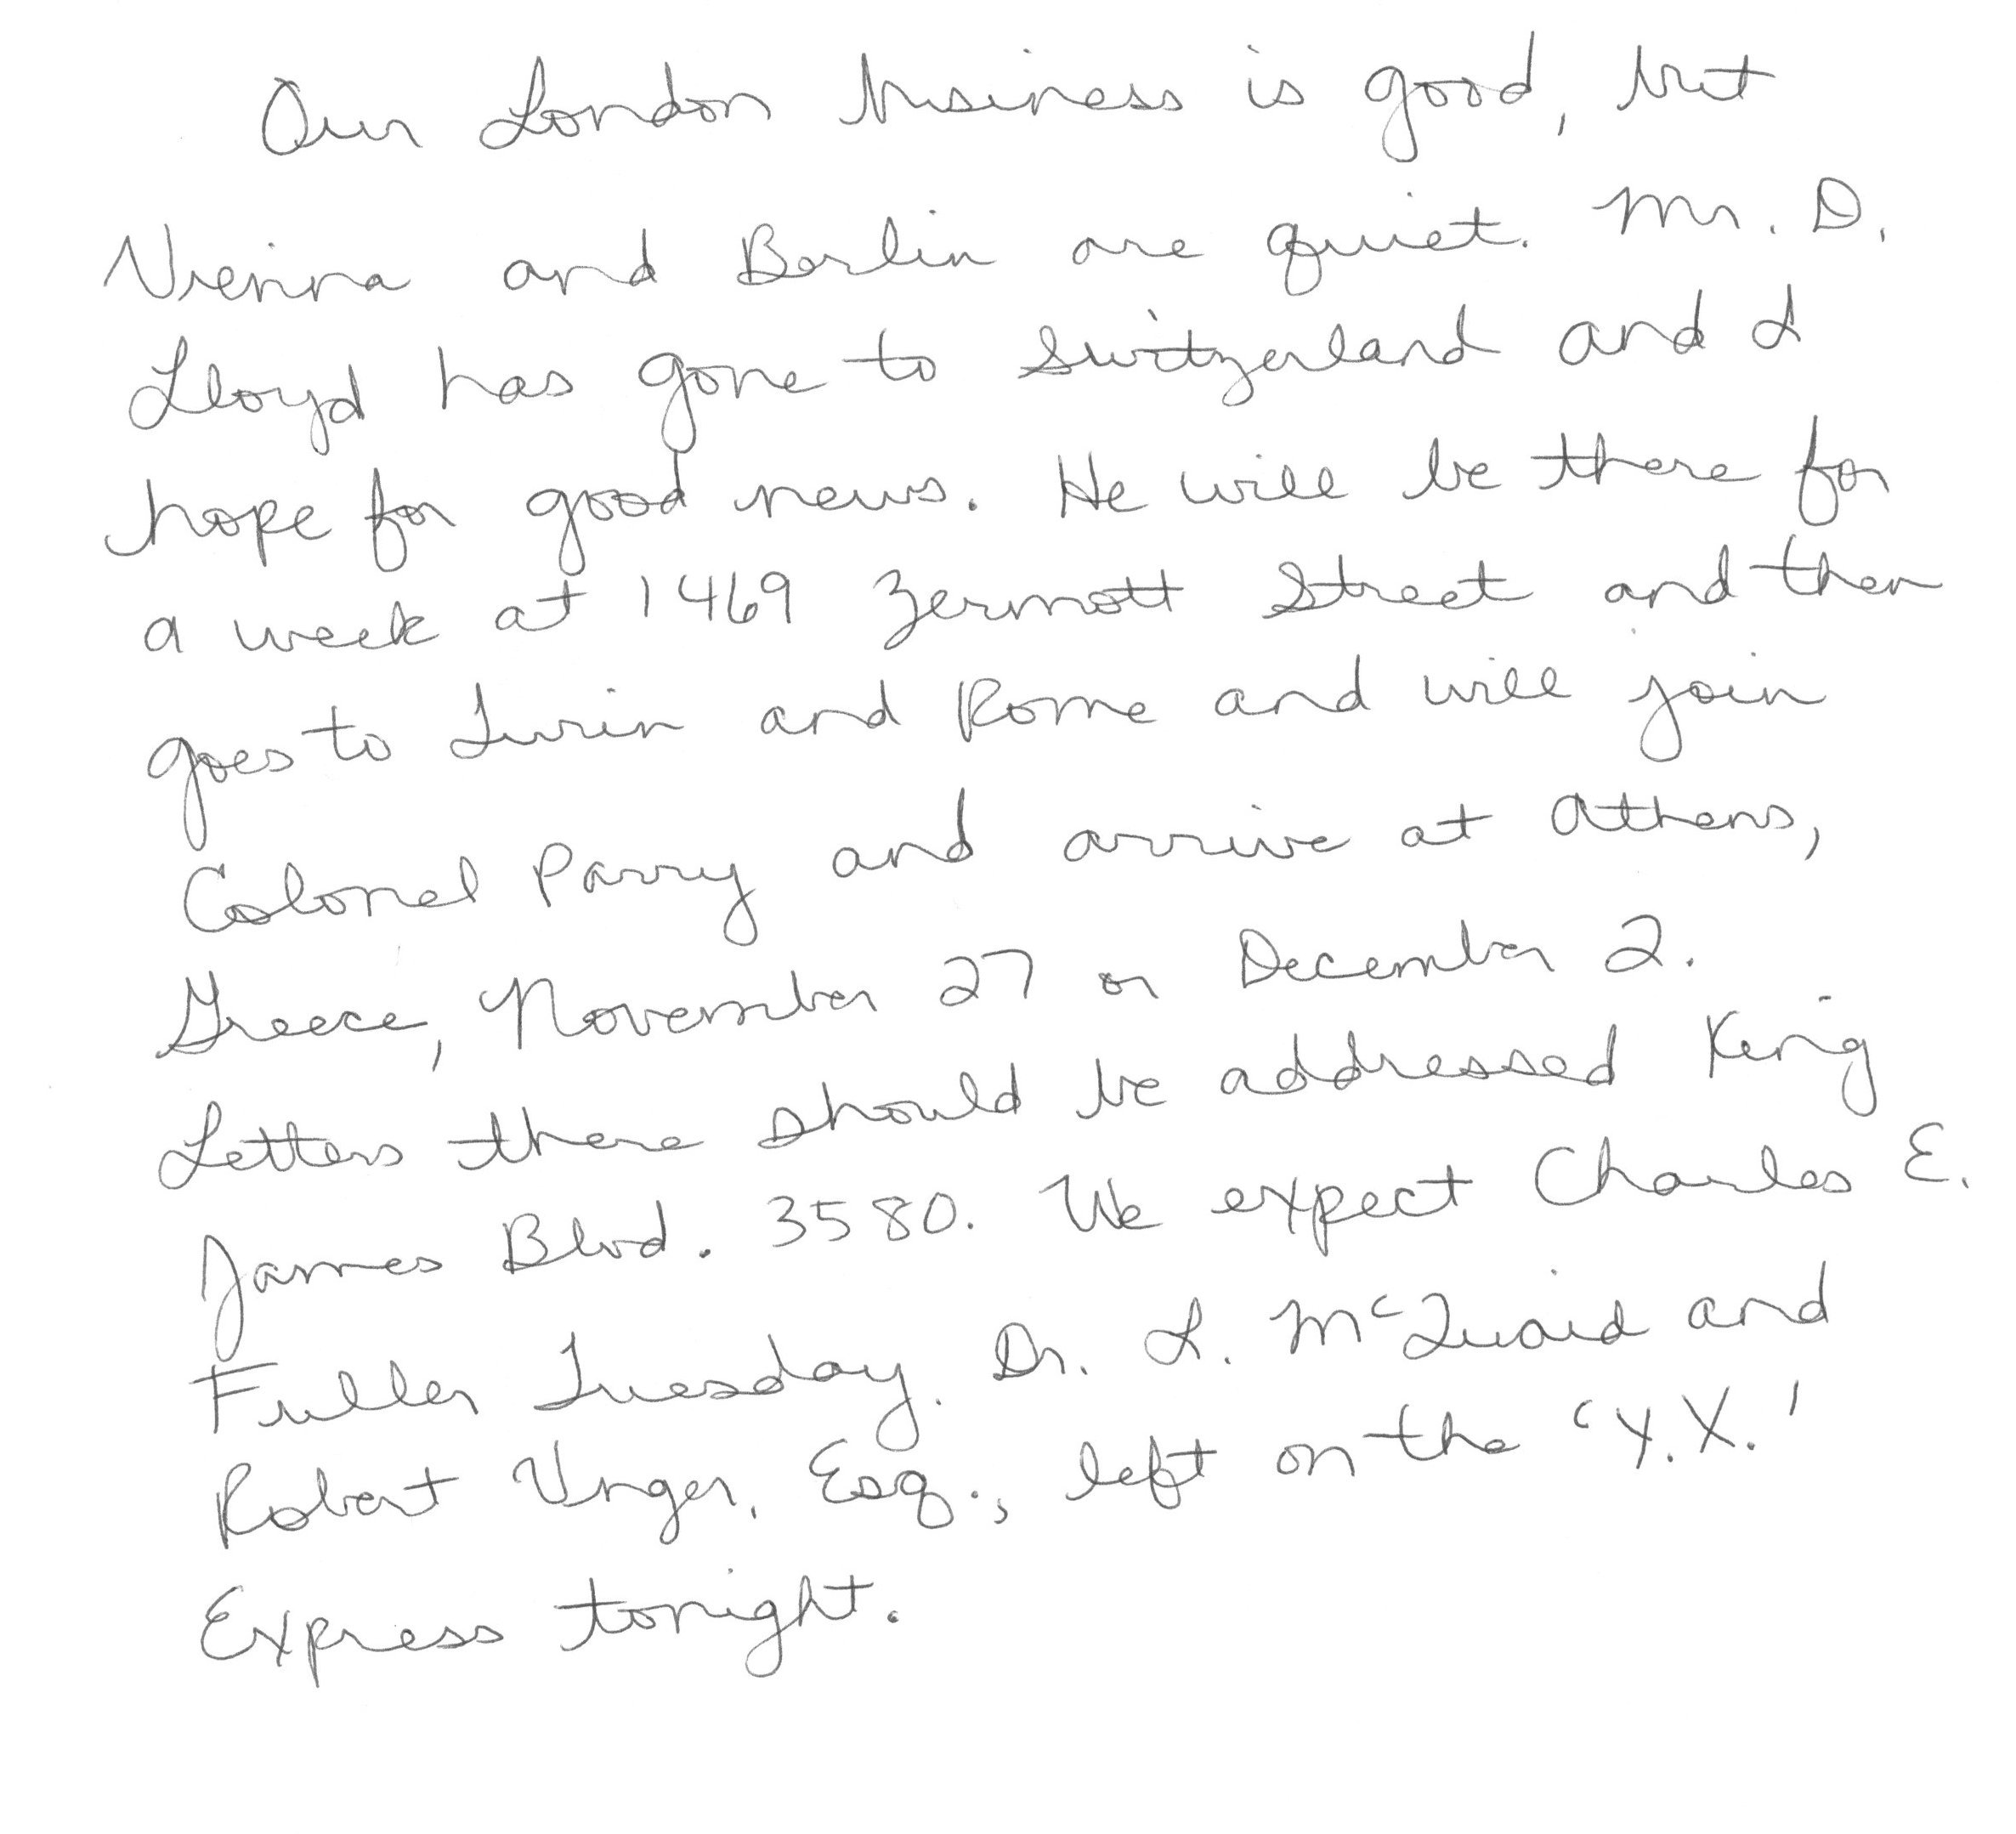 Our London business is good, but
Vienna and Berlin are quiet. Mr. D.
Lloyd has gone to Switzerland and I
hope for good news. He will be there for
a week at 1469 Zermott Street and then
goes to Turin and Rome and will join
Colonel Parry and arrive at Athens,
Greece, November 27 or December 2.
Letters there should be addressed King
James Blvd. 3580. We expect Charles E.
Fuller Tuesday. Dr. L. McQuaid and
Robert Unger, Esq., left on the 'Y.X.'
Express tonight.